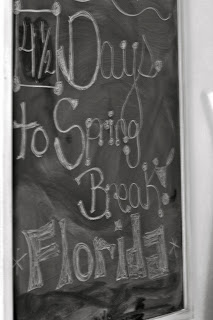 4½ Days
to Spring
Break!
Florida